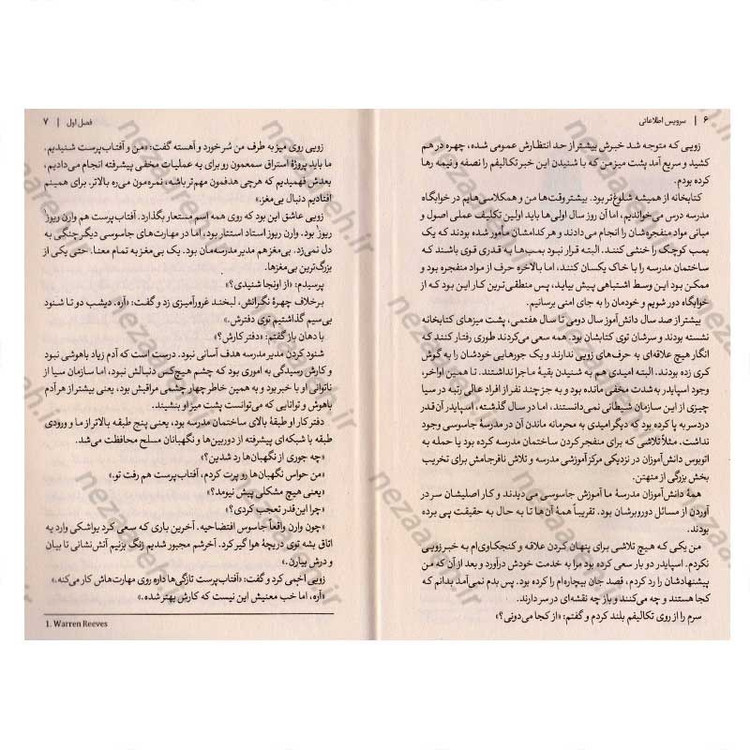 ۶ | سرویس اطلاعاتی
زویی که متوجه شد خبرش بیشتر از حد انتظارش عمومی شده، چهره در هم
کشید و سریع آمد پشت میز من که با شنیدن این خبر تکالیفم را نصفه و نیمه رها
کرده بودم.
کتابخانه از همیشه شلوغ‌تر بود. بیشتر وقت‌ها من و همکلاسی‌هایم در خوابگاه
مدرسه درس می‌خواندیم، اما آن روز سال اولی‌ها باید اولین تکلیف عملی اصول و
مبانی مواد منفجره‌شان را انجام می‌دادند و هر کدامشان مأمور شده بودند که یک
بمب کوچک را خنثی کنند. البته قرار نبود بمب‌ها به قدری قوی باشند که
ساختمان مدرسه را با خاک یکسان کنند، اما بالاخره حرف از مواد منفجره بود و
ممکن بود این وسط اشتباهی پیش بیاید، پس منطقی‌ترین کار این بود که از
خوابگاه دور شویم و خودمان را به جای امنی برسانیم.
بیشتر از صد سال دانش‌آموز سال دومی تا سال هفتمی، پشت میزهای کتابخانه
نشسته بودند و سرشان توی کتابشان بود. همه سعی می‌کردند طوری رفتار کنند که
انگار هیچ علاقه‌ای به حرف‌های زویی ندارند و یک جورهایی خودشان را به گوش
کری زده بودند. البته امیدی هم به شنیدن بقیهٔ ماجرا نداشتند. تا همین اواخر،
وجود اسپایدر به‌شدت مخفی مانده بود و به جز چند نفر از افراد عالی رتبه در سیا
چیزی از این سازمان شیطانی نمی‌دانستند، اما در سال گذشته، اسپایدر آن‌قدر
دردسر به پا کرده بود که دیگر امیدی به محرمانه ماندن آن در مدرسهٔ جاسوسی وجود
نداشت. مثلاً تلاشی که برای منفجر کردن ساختمان مدرسه کرده بود یا حمله به
اتوبوس دانش‌آموزان در نزدیکی مرکز آموزشی مدرسه و تلاش نافرجامش برای تخریب
بخش بزرگی از منهتن.
همهٔ دانش‌آموزان مدرسهٔ ما آموزش جاسوسی می‌دیدند و کار اصلیشان سر در
آوردن از مسائل دوروبرشان بود. تقریباً همهٔ آن‌ها تا به حال به حقیقت پی برده
بودند.
من یکی که هیچ تلاشی برای پنهان کردن علاقه و کنجکاوی‌ام به خبر زویی
نکردم. اسپایدر دو بار سعی کرده بود مرا به خدمت خودش درآورد و بعد از آن که من
پیشنهادشان را رد کردم، قصد جان بیچاره‌ام را کرده بود. پس بدم نمی‌آمد بدانم که
کجا هستند و چه می‌کنند و باز چه نقشه‌ای در سر دارند.
سرم را از روی تکالیفم بلند کردم و گفتم: «از کجا می‌دونی؟»
فصل اول | ۷
زویی روی میز به طرف من سُر خورد و آهسته گفت: «من و آفتاب‌پرست شنیدیم.
ما باید پروژهٔ استراق سمعمون رو برای یه عملیات مخفی پیشرفته انجام می‌دادیم،
بعدش فهمیدیم که هرچی هدفمون مهم‌تر باشه، نمره‌مون می‌ره بالاتر. برای همینم
افتادیم دنبال بی‌مغز.»
زویی عاشق این بود که روی همه اسم مستعار بگذارد. آفتاب‌پرست هم وارن ریوز¹
بود. وارن ریوز استاد استتار بود، اما در مهارت‌های جاسوسی دیگر چنگی به
دل نمی‌زد. بی‌مغز هم مدیر مدرسه‌مان بود. یک بی‌مغز به تمام معنا. حتی یکی از
بزرگ‌ترین بی‌مغزها.
پرسیدم: «از اونجا شنیدی؟»
برخلاف چهرهٔ نگرانش، لبخند غرورآمیزی زد و گفت: «آره. دیشب دو تا شنود
بی‌سیم گذاشتیم توی دفترش.»
با دهان باز گفتم: «دفتر کارش؟»
شنود کردن مدیر مدرسه هدف آسانی نبود. درست است که آدم زیاد باهوشی نبود
و کارش رسیدگی به اموری بود که چشم هیچ‌کس دنبالش نبود، اما سازمان سیا از
ناتوانی او با خبر بود و به همین خاطر چهار چشمی مراقبش بود، یعنی بیشتر از هر آدم
باهوش و توانایی که می‌توانست پشت میز او بنشیند.
دفتر کار او طبقهٔ بالای ساختمان مدرسه بود، یعنی پنج طبقه بالاتر از ما و ورودی
طبقه با شبکه‌ای پیشرفته از دوربین‌ها و نگهبانان مسلح محافظت می‌شد.
«چه جوری از نگهبان‌ها رد شدین؟»
«من حواس نگهبان‌ها رو پرت کردم، آفتاب‌پرست هم رفت تو.»
«یعنی هیچ مشکلی پیش نیومد؟»
«چرا این‌قدر تعجب کردی؟»
«چون وارن واقعاً جاسوس افتضاحیه. آخرین باری که سعی کرد یواشکی وارد یه
اتاق بشه توی دریچهٔ هوا گیر کرد. آخرشم مجبور شدیم زنگ بزنیم آتش‌نشانی تا بیان
و درش بیارن.»
زویی اخمی کرد و گفت: «آفتاب‌پرست تازگی‌ها داره روی مهارت‌هاش کار می‌کنه.»
«آره، اما خب معنیش این نیست که کارش بهتر شده.»
1. Warren Reeves
nezaareh.ir